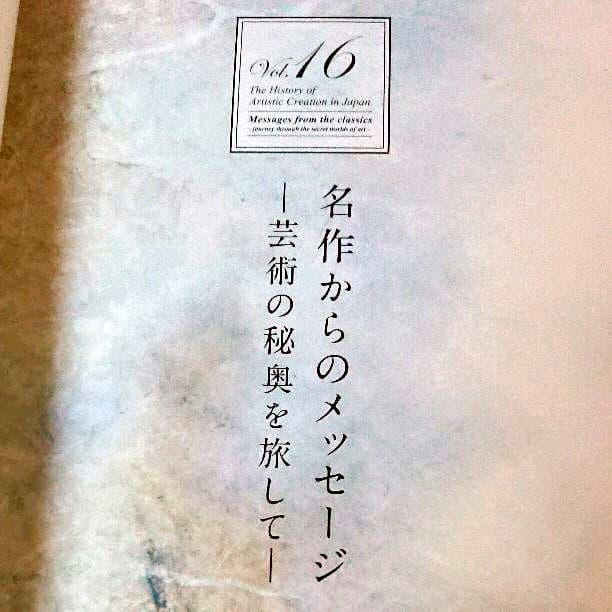 Vol.16
The History of
Artistic Creation in Japan
Messages from the classics
- journey through the secret worlds of art -
名作からのメッセージ
―芸術の秘奥を旅して―